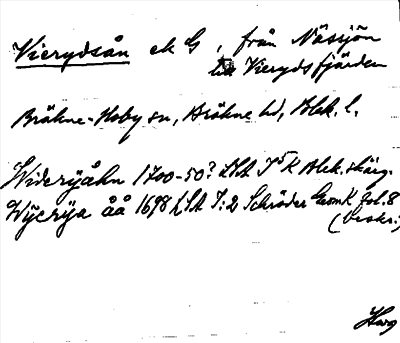 Vierydsån ek G, från Nässjön
till Vierydsfjärden
Bräkne-Hoby sn, Bräkne hd, Blek. l.
Widerijåhn 1700-50? LSA I 5 K Blek. skärg.
Wijerija åå 1698 LSA I:2 Schröder GeomK fol. 8
(beskr.)